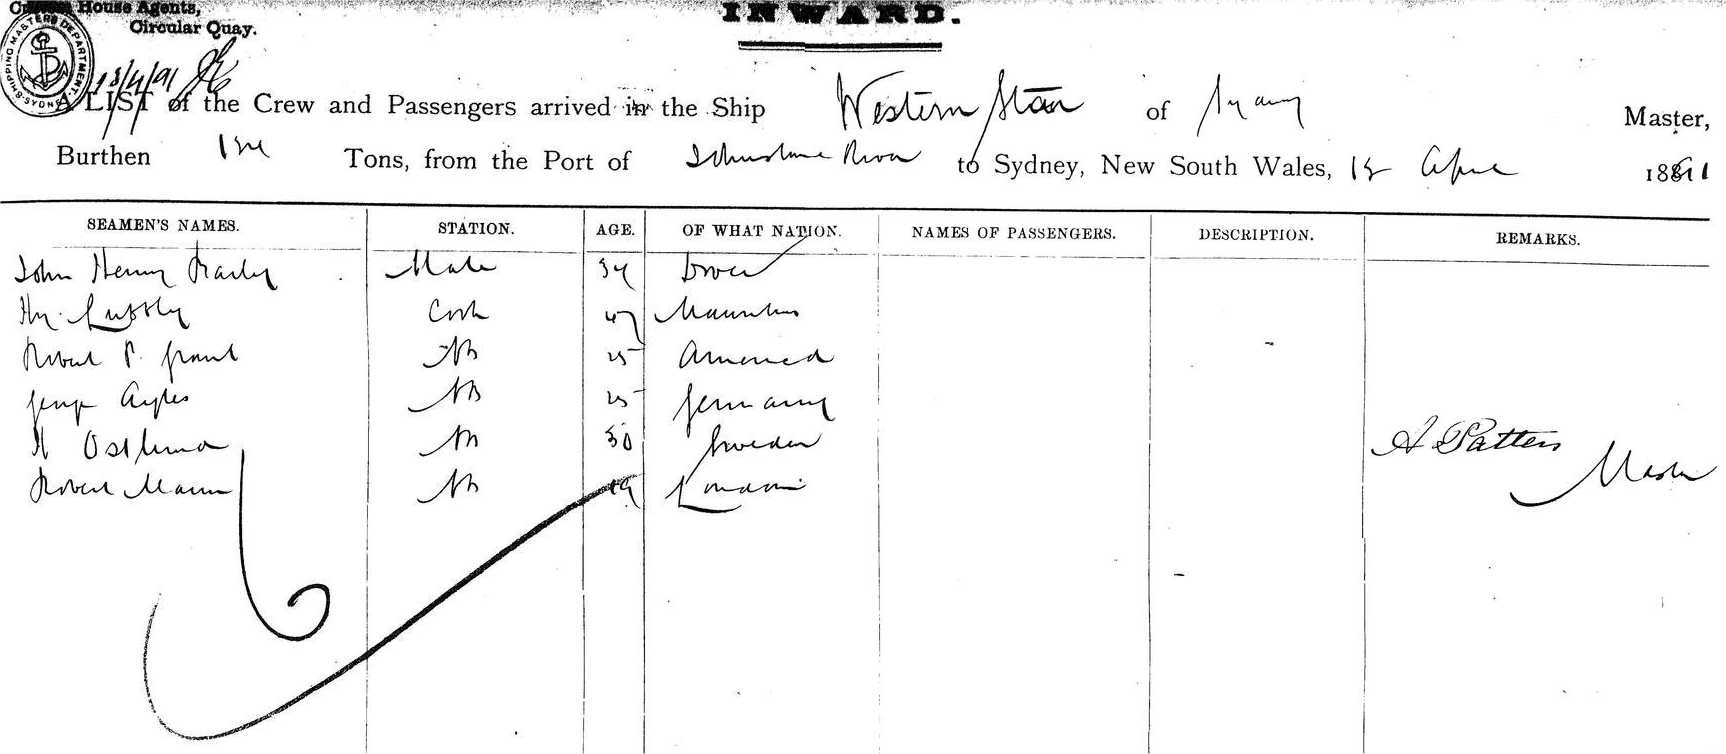 House Agents,
Circular Quay.
SHIPPING MASTERS DEPARTMENT. SYDNEY
INWARD.
13/4/91
A LIST of the Crew and Passengers arrived in the Ship Western Star of Sydney Master,
Burthen Tons, from the Port of Johnstone River to Sydney, New South Wales, 13 April 1891
SEAMEN'S NAMES. STATION. AGE. OF WHAT NATION. NAMES OF PASSENGERS. DESCRIPTION. REMARKS.
John Henry Mate 34 Dover
Hy. Cook 47 Mauritius
Robert P. Grant AB 25
George AB 25 Germany
H AB 30 Sweden
Robert Mann AB 19 London
A Patten
Master